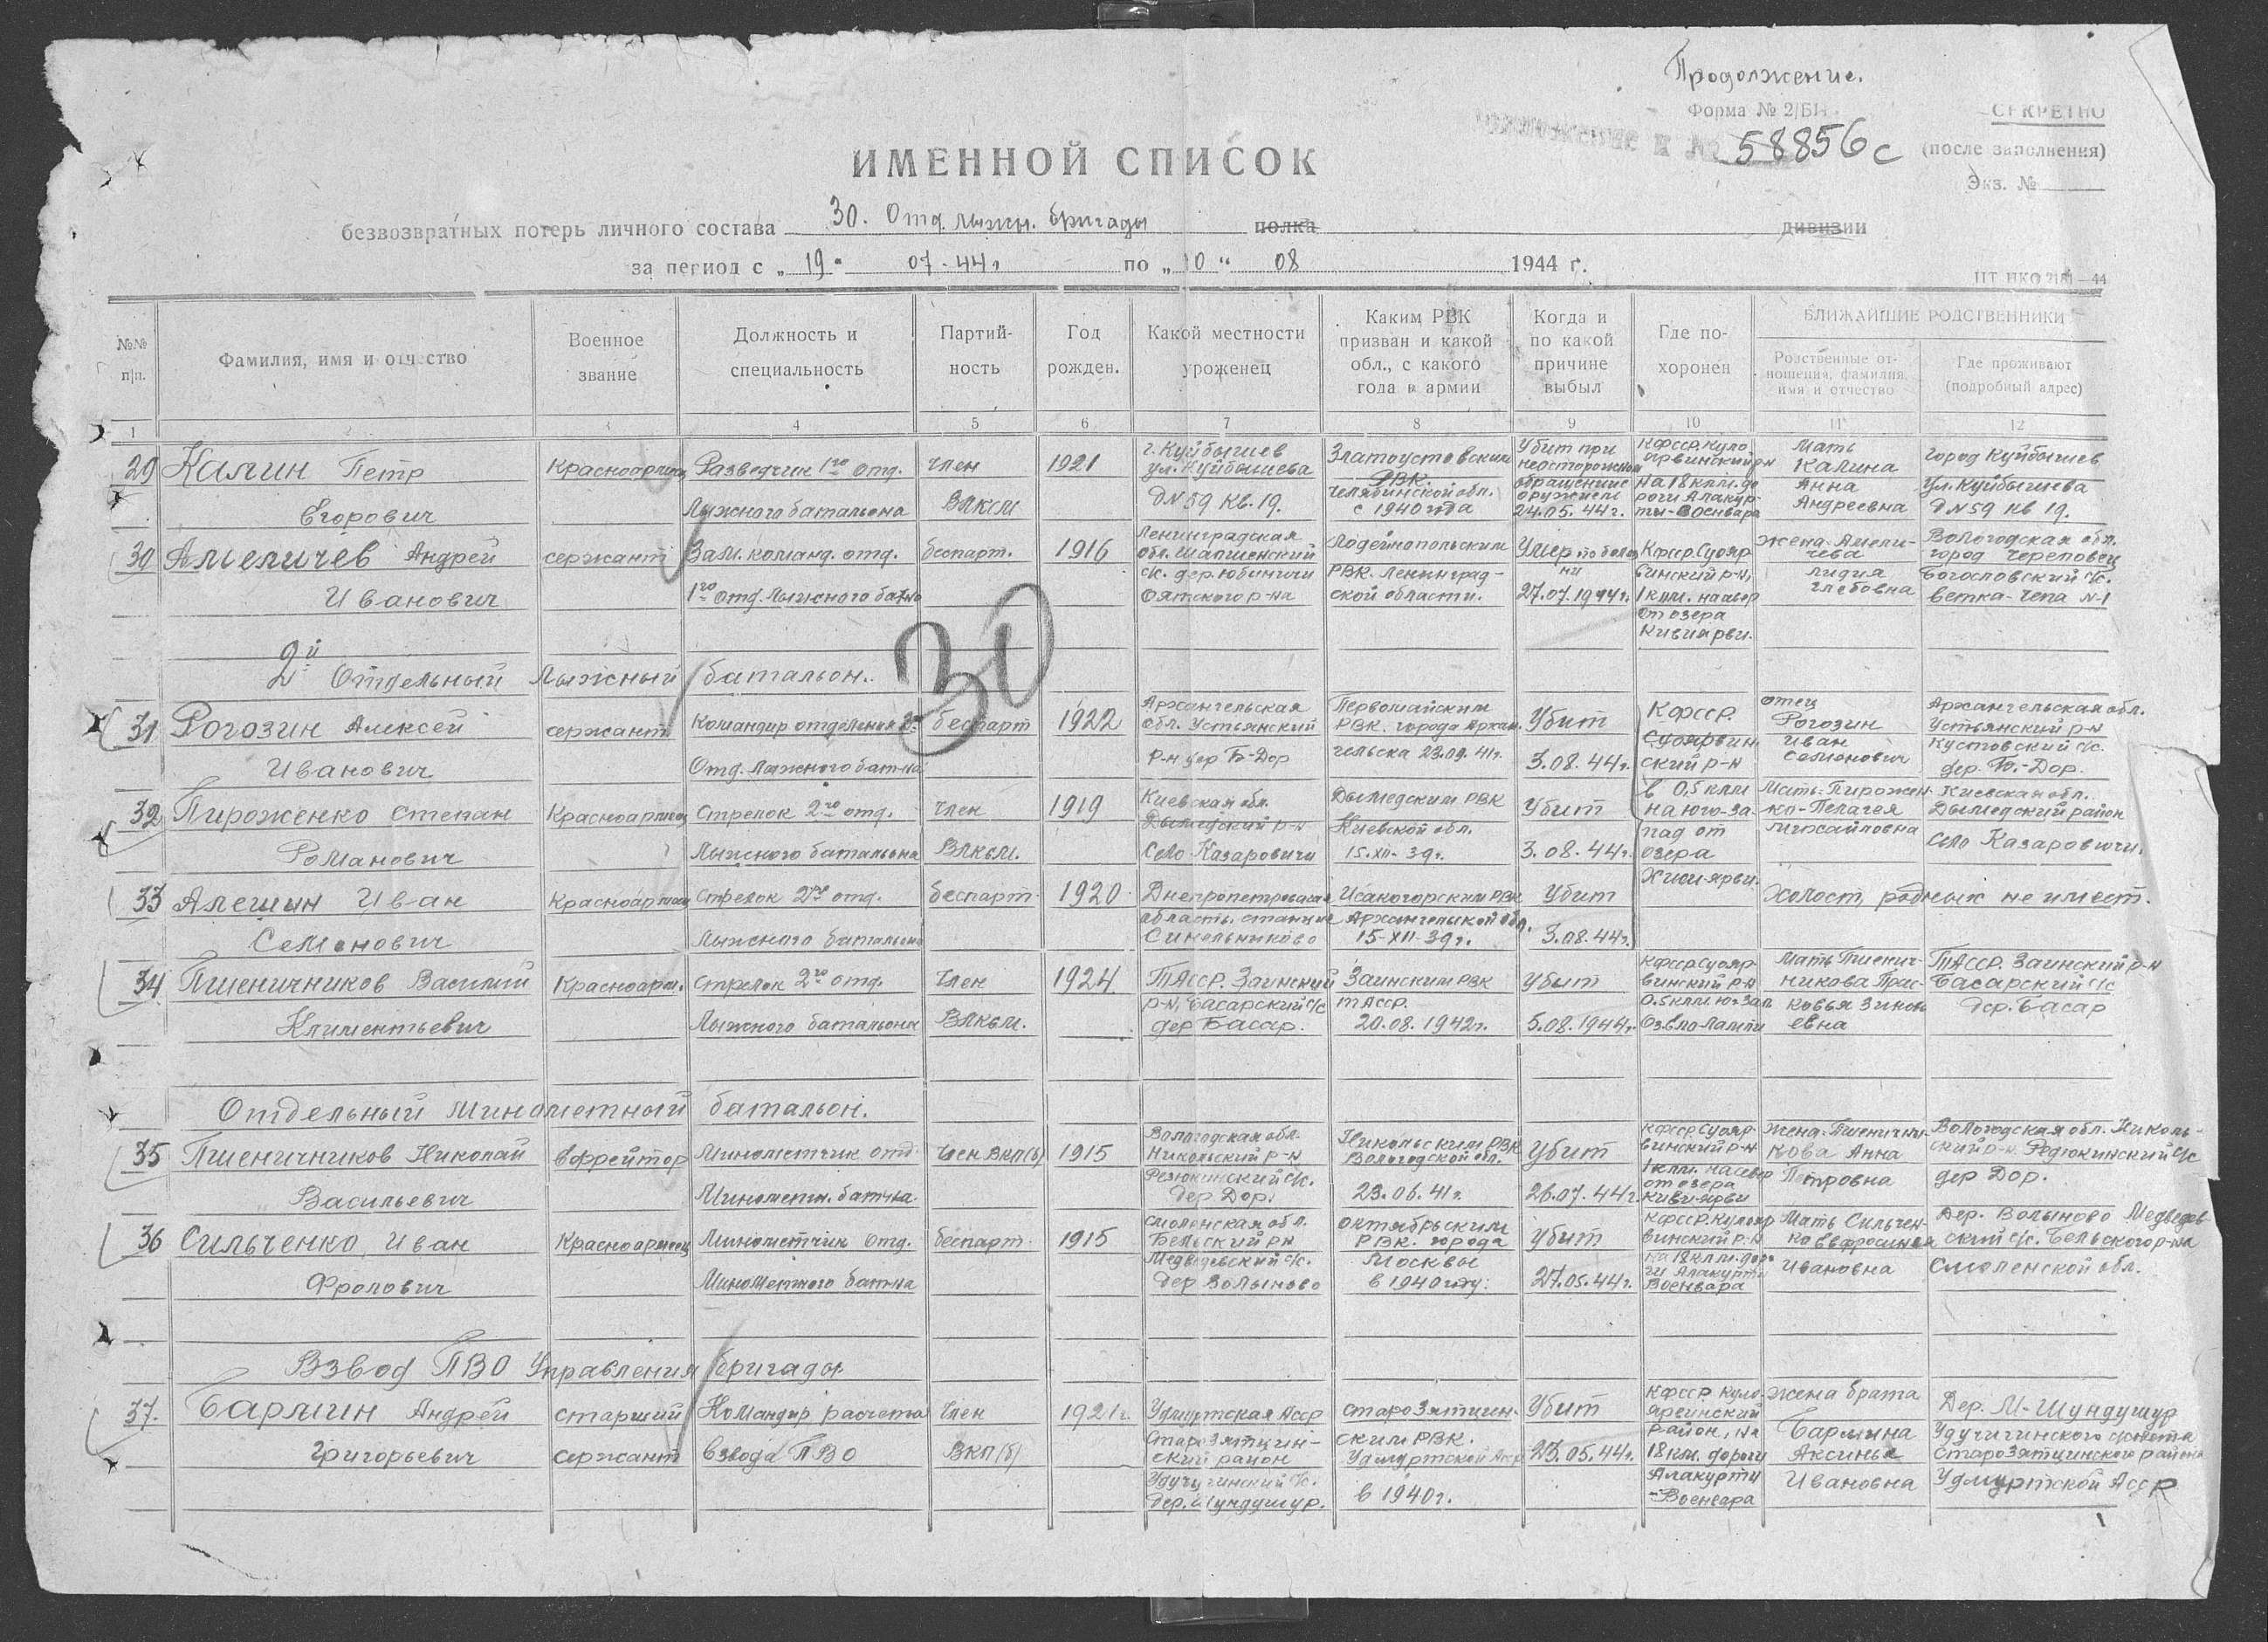 Продолжение.
Форма № 2/БП
СЕКРЕТНО
(после заполнения)
Экз. №
58856с
ИМЕННОЙ СПИСОК
безвозвратных потерь личного состава 30. Отд. лыжн. бригады полка дивизии
за период с „19" 07-44г по „10" 08 1944 г.
№№ п/п.
Фамилия, имя и отчество
Военное звание
Должность и специальность
Партийность
Год рожден.
Какой местности уроженец
Каким РВК призван и какой обл., с какого года в армии
Когда и по какой причине выбыл
Где похоронен
БЛИЖАЙШИЕ РОДСТВЕННИКИ
Родственные отношения, фамилия, имя и отчество
Где проживают (подробный адрес)
1 2 3 4 5 6 7 8 9 10 11 12
29 Калин Петр Егорович
Красноармеец
Разведчик 1го отд. Лыжного батальона
Член ВЛКСМ
1921
г. Куйбышев ул. Куйбышева д N 59 кв. 19.
Златоустовским РВК. Челябинской обл. с 1940 года
Убит при неосторожном обращение оружием 24.05.44г.
КФССР. Куолоярвинский р-н на 18 клм. дороги Алакуртти-Военвара
Мать Калина Анна Андреевна
город Куйбышев ул. Куйбышева д N 59 кв 19.
30 Амеличев Андрей Иванович
сержант
Зам. команд. отд. 1го отд. Лыжного бат-на
беспарт.
1916
Ленинградская обл. Шапшенский с/с. дер. Юбиничи Оятского р-на
Лодейнопольским РВК. Ленинградской области.
Умер по болезни 27.07.1944г.
Кфсср. Суоярвинский р-н, 1 клм. на север от озера Кивиярви.
жена-Амеличева Лидия Глебовна
Вологодская обл. город Череповец Богословский с/с. ветка-Чепа N-1
2й Отдельный Лыжный батальон.
30
31 Рогозин Алексей Иванович
сержант
Командир отделения 2го Отд. Лыжного бат-на
беспарт
1922
Архангельская обл. Устьянский р-н дер Б-Дор
Первомайским РВК. города Архангельска 23.09.41г.
Убит 3.08.44г.
Кфсср. Суоярвинский р-н в 0,5 клм на юго-запад от озера Хиси-ярви.
отец Рогозин Иван Семенович
Архангельская обл. Устьянский р-н Кустовский с/с. дер. Б.-Дор.
32 Пироженко Степан Романович
Красноармеец
Стрелок 2го отд. Лыжного батальона
Член ВЛКСМ.
1919
Киевская обл. Дымедский р-н Село Казаровичи
Дымедским РВК Киевской обл. 15.XII-39г.
Убит 3.08.44г.
Мать-Пироженко-Пелагея Михайловна
Киевская обл. Дымедский район Село Казаровичи.
33 Алешин Иван Семенович
Красноармеец
Стрелок 2го отд. Лыжного батальона
беспарт.
1920
Днепропетровская область. станция Синельниково
Исакогорским РВК Архангельской обл. 15-XII-39г.
Убит 3.08.44г.
Холост, родных не имеет.
34 Пшеничников Василий Климентьевич
Красноарм.
Стрелок 2го отд. Лыжного батальона
Член ВЛКСМ.
1924
ТАССР. Заинский р-н, Басарский с/с дер Басар.
Заинским РВК ТАССР. 20.08.1942г.
Убит 5.08.1944г.
Кфсср Суоярвинский р-н 0.5 клм ю-зап
Мать Пшеничникова Прасковья Зиновьевна
ТАССР. Заинский р-н Басарский с/с дер. Басар
Отдельный минометный батальон.
35 Пшеничников Николай Васильевич
ефрейтор
Минометчик отд. Минометн. бат-на.
Член ВКП(б)
1915
Вологодская обл. Никольский р-н с/с. дер Дор.
Никольским РВК Вологодской обл. 23.06.41г.
Убит 26.07.44г.
Кфсср Суоярвинский р-н 1 клм. на север от озера Киви-ярви
жена-Пшеничникова Анна Петровна
Вологодская обл. Никольский р-н. с/с дер Дор.
36 Сильченко Иван Фролович
Красноармеец
Минометчик отд. Минометного бат-на
беспарт.
1915
Смоленская обл. Бельский р-н Медведевский с/с. дер Волыново
Октябрьским РВК. города Москвы в 1940 году.
Убит 27.05.44г.
Кфсср. Куолоярвинский р-н на 18 клм. дороги Алакуртти Военвара
Мать Сильченко Ефросинья Ивановна
Дер. Волыново Медведевский с/с. Бельского р-на Смоленской обл.
Взвод ПВО Управления бригады.
37. Бармин Андрей Григорьевич
старший сержант
Командир расчета взвода ПВО
Член ВКП(б)
1921г
Удмуртская Асср Старозятцинский район Удучугинский с/с. дер. Шундушур.
Старозятцинским РВК. Удмуртской Асср в 1940г.
Убит 23.05.44г.
Кфсср. Куолоярвинский район, на 18 км. дороги Алакуртти-Военвара
жена брата Бармина Аксинья Ивановна
Дер. М-Шундушур Удучугинского с/совета Старозятцинского района Удмуртской Асср